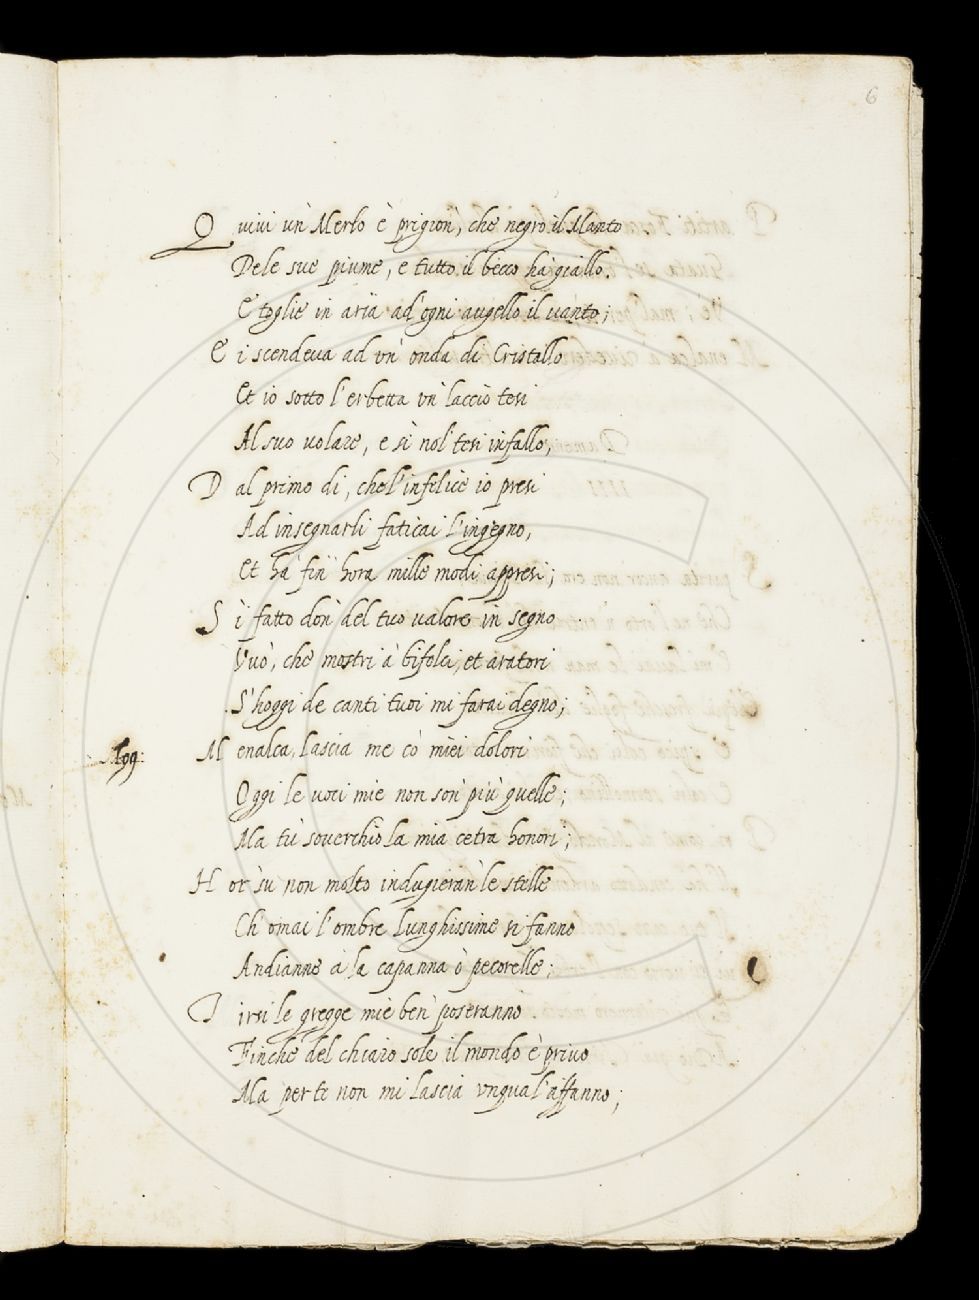 6
Quivi un' Merlo è prigion', che negro il Manto
Dele sue piume, e tutto il becco ha' giallo.
E toglie in aria ad' ogni augello il vanto;
Ei scendeva ad vn' onda di Cristallo
Et io sotto l'erbetta vn' laccio tesi
Al suo volare, e sì nol' tesi in fallo,
Dal primo di, che l'infelice io presi
Ad insegnarli faticai l'ingegno,
Et ha' fin' hora mille modi appresi;
Sì fatto don' del tuo valore in segno
Vuò, che mostri a' bifolci, et aratori
S'hoggi de canti tuoi mi farai degno;
Menalca, lascia me cò miei dolori
Oggi le voci mie non son' più quelle;
Ma tù soverchio la mia cetra honori;
Hor sù non molto indugieran' le stelle
Ch' omai l'ombre lunghissime si fanno
Andianne à la capanna ò pecorelle;
Tirsi le gregge mie ben' poseranno
Finche del chiaro sole il mondo è privo
Ma per te non mi lascia vnqua l'affanno;